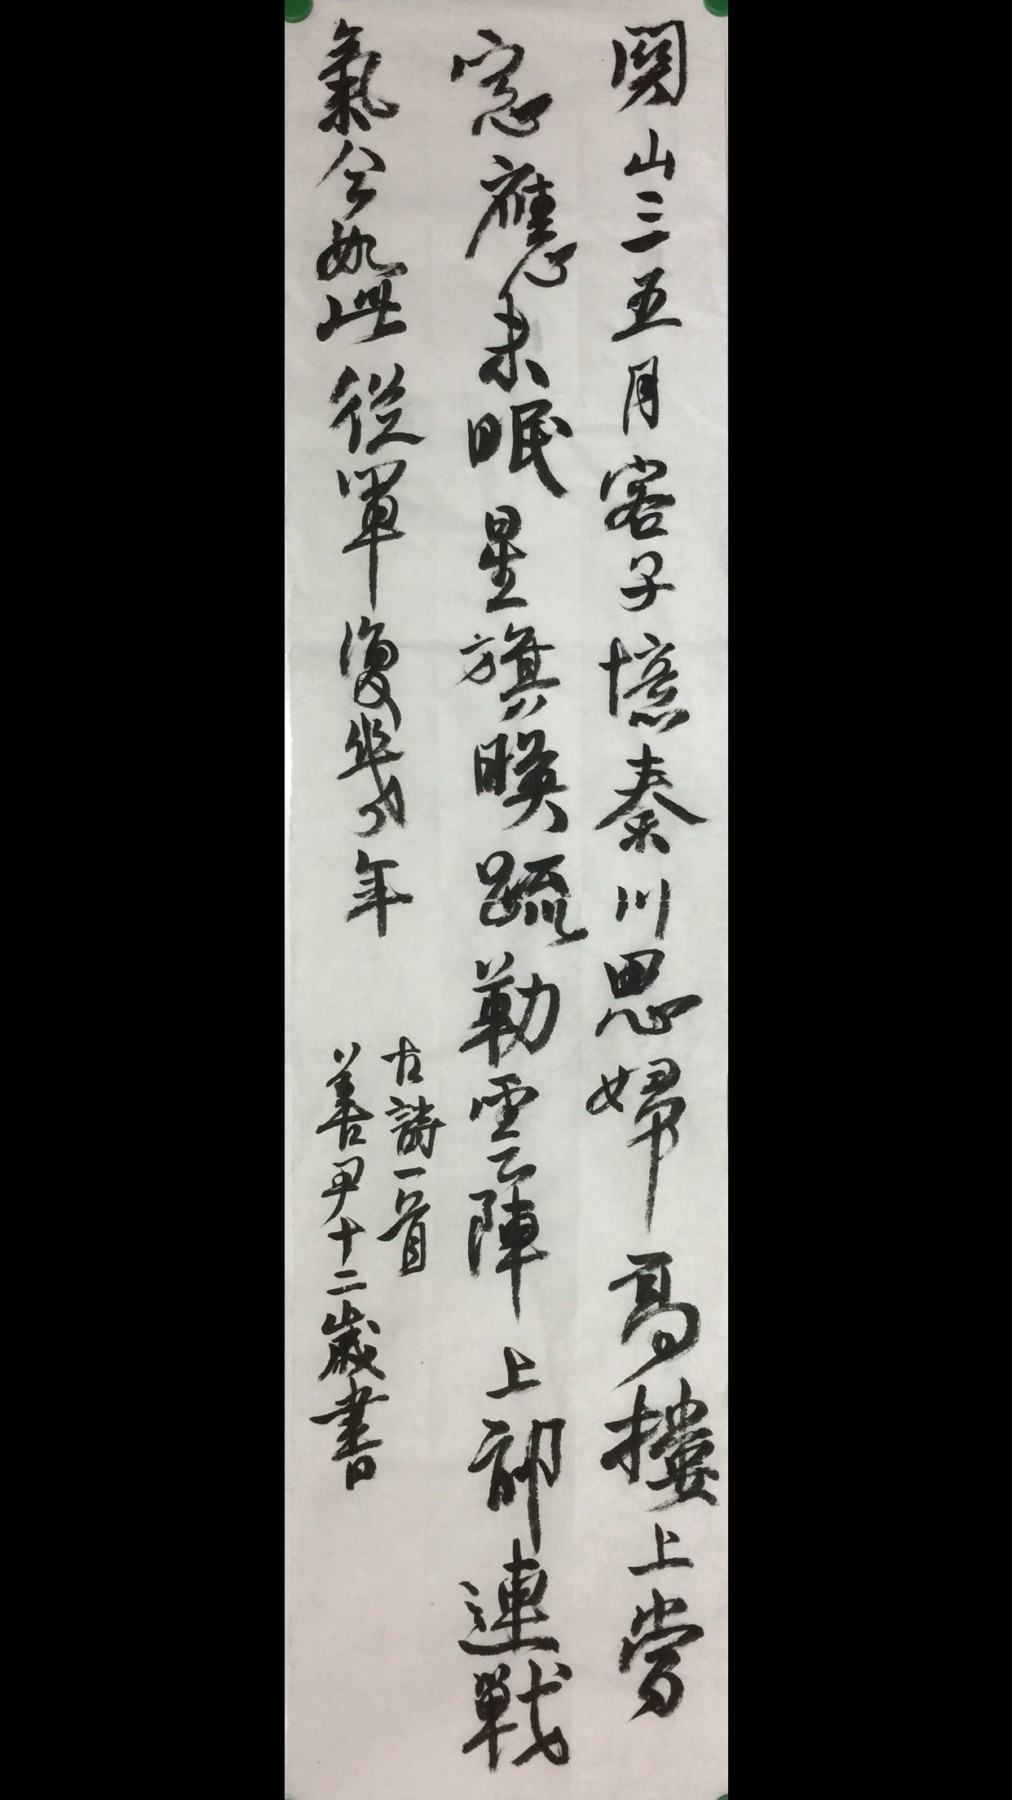 関山三五月客子憶秦川思婦高樓上當
窓應未眠星旗映疏勒雲陣上祁連戰
氣今如此從軍復幾年
古詩一首
善尹十二歲書